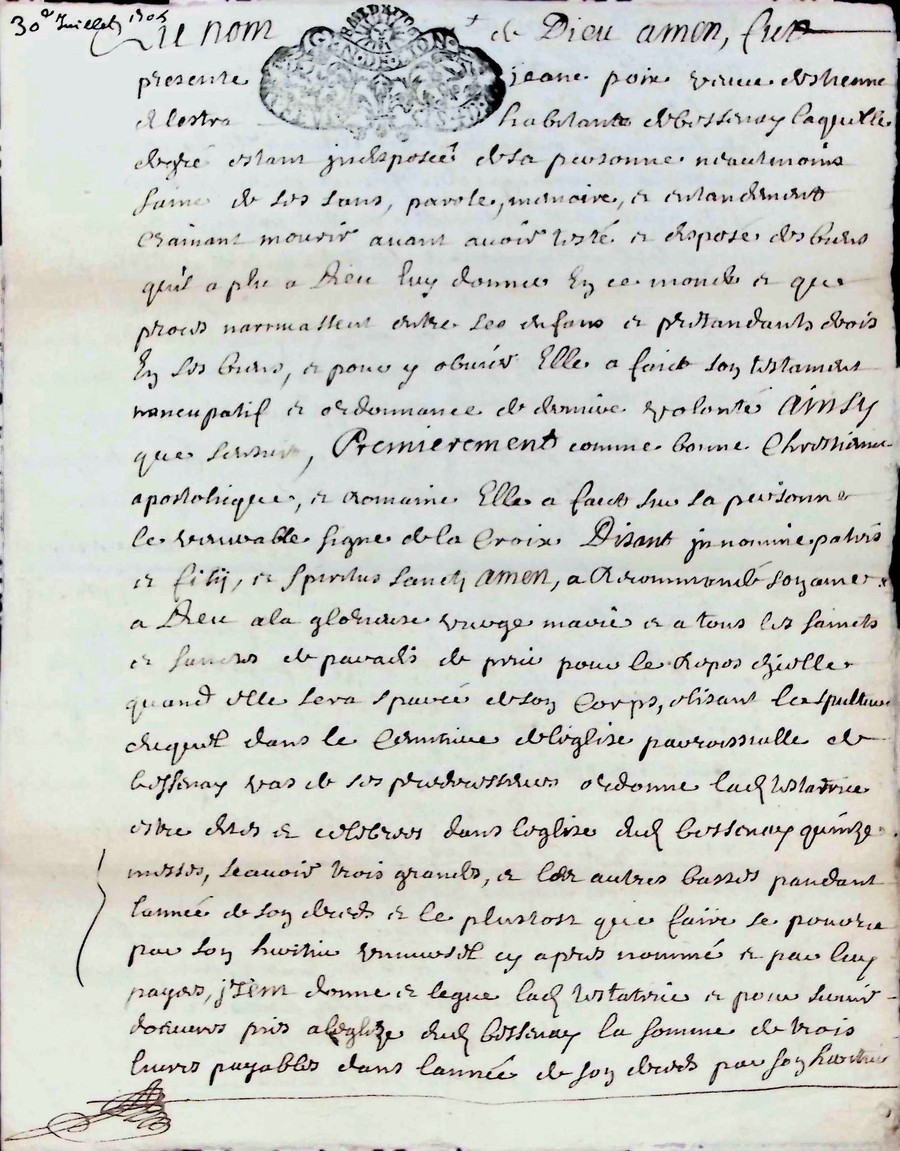 30e Juillet 1705
Au nom de Dieu amen, fut
presente jeane poix vefve destienne
delestra habitante de bessenay laquelle
de gré estant jndisposeé de sa personne neautmoins
saine de ses sans, parole, memoire, et entandement
craimant mourir avant avoir testé et disposé des biens
quil a plu a Dieu luy donner En ce monde et que
proces narrivassent entre ses enfans et pretandants drois
En ses biens, et pour y obvier Elle a faict son testament
noncupatif et ordonnance de derniere volonté Ainsy
que sensuit, Premierement comme bonne Chrestienne
apostolique, et Romaine Elle a faict sur sa personne
le venerable signe de la Croix Disant jn nomine patris
et filij, et spiritus sancty amen, a Recommandé son ame
a Dieu a la glorieuse vierge marie et a tous les saincts
et sainctes de paradis de prier pour le Repos dicelle
quand elle sera sparéé de son Corps, elisant la spulture
duquel dans le Cemitiere de leglise parroissialle de
bessenay vas de ses predecesseurs ordonne lad testatrice
estre dites et celebrees dans leglise dud bessenay quinze
messes, scavoir trois grandes, et les autres basses pandant
lannéé de son deceds et le plustost que faire se pourra
par son heritier universel cy apres nommé et par luy
payees, jtem donne et legue lad testatrice et pour servir
doeuvres pies a leglize dud bessenay la somme de trois
livres payables dans lannéé de son deceds par son heritier